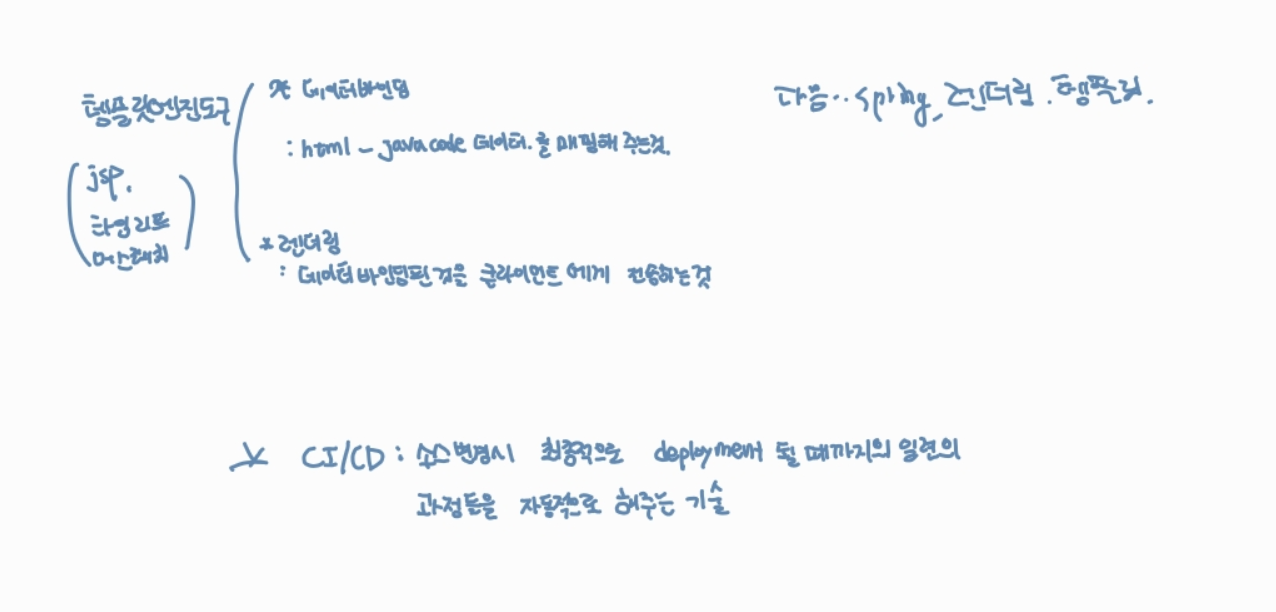 템플릿엔진도구
(jsp.
타임리프
머스태치)
* 데이터바인딩
: html - java code 데이터.를 매핑해 주는것.
* 렌더링
: 데이터 바인딩된 것을 클라이언트에게 전송하는것
다음.. spring, 렌더링. 템플릿.
* CI/CD : 소스변경시 최종적으로 deployment 될 때까지의 일련의
과정들을 자동적으로 해주는 기술